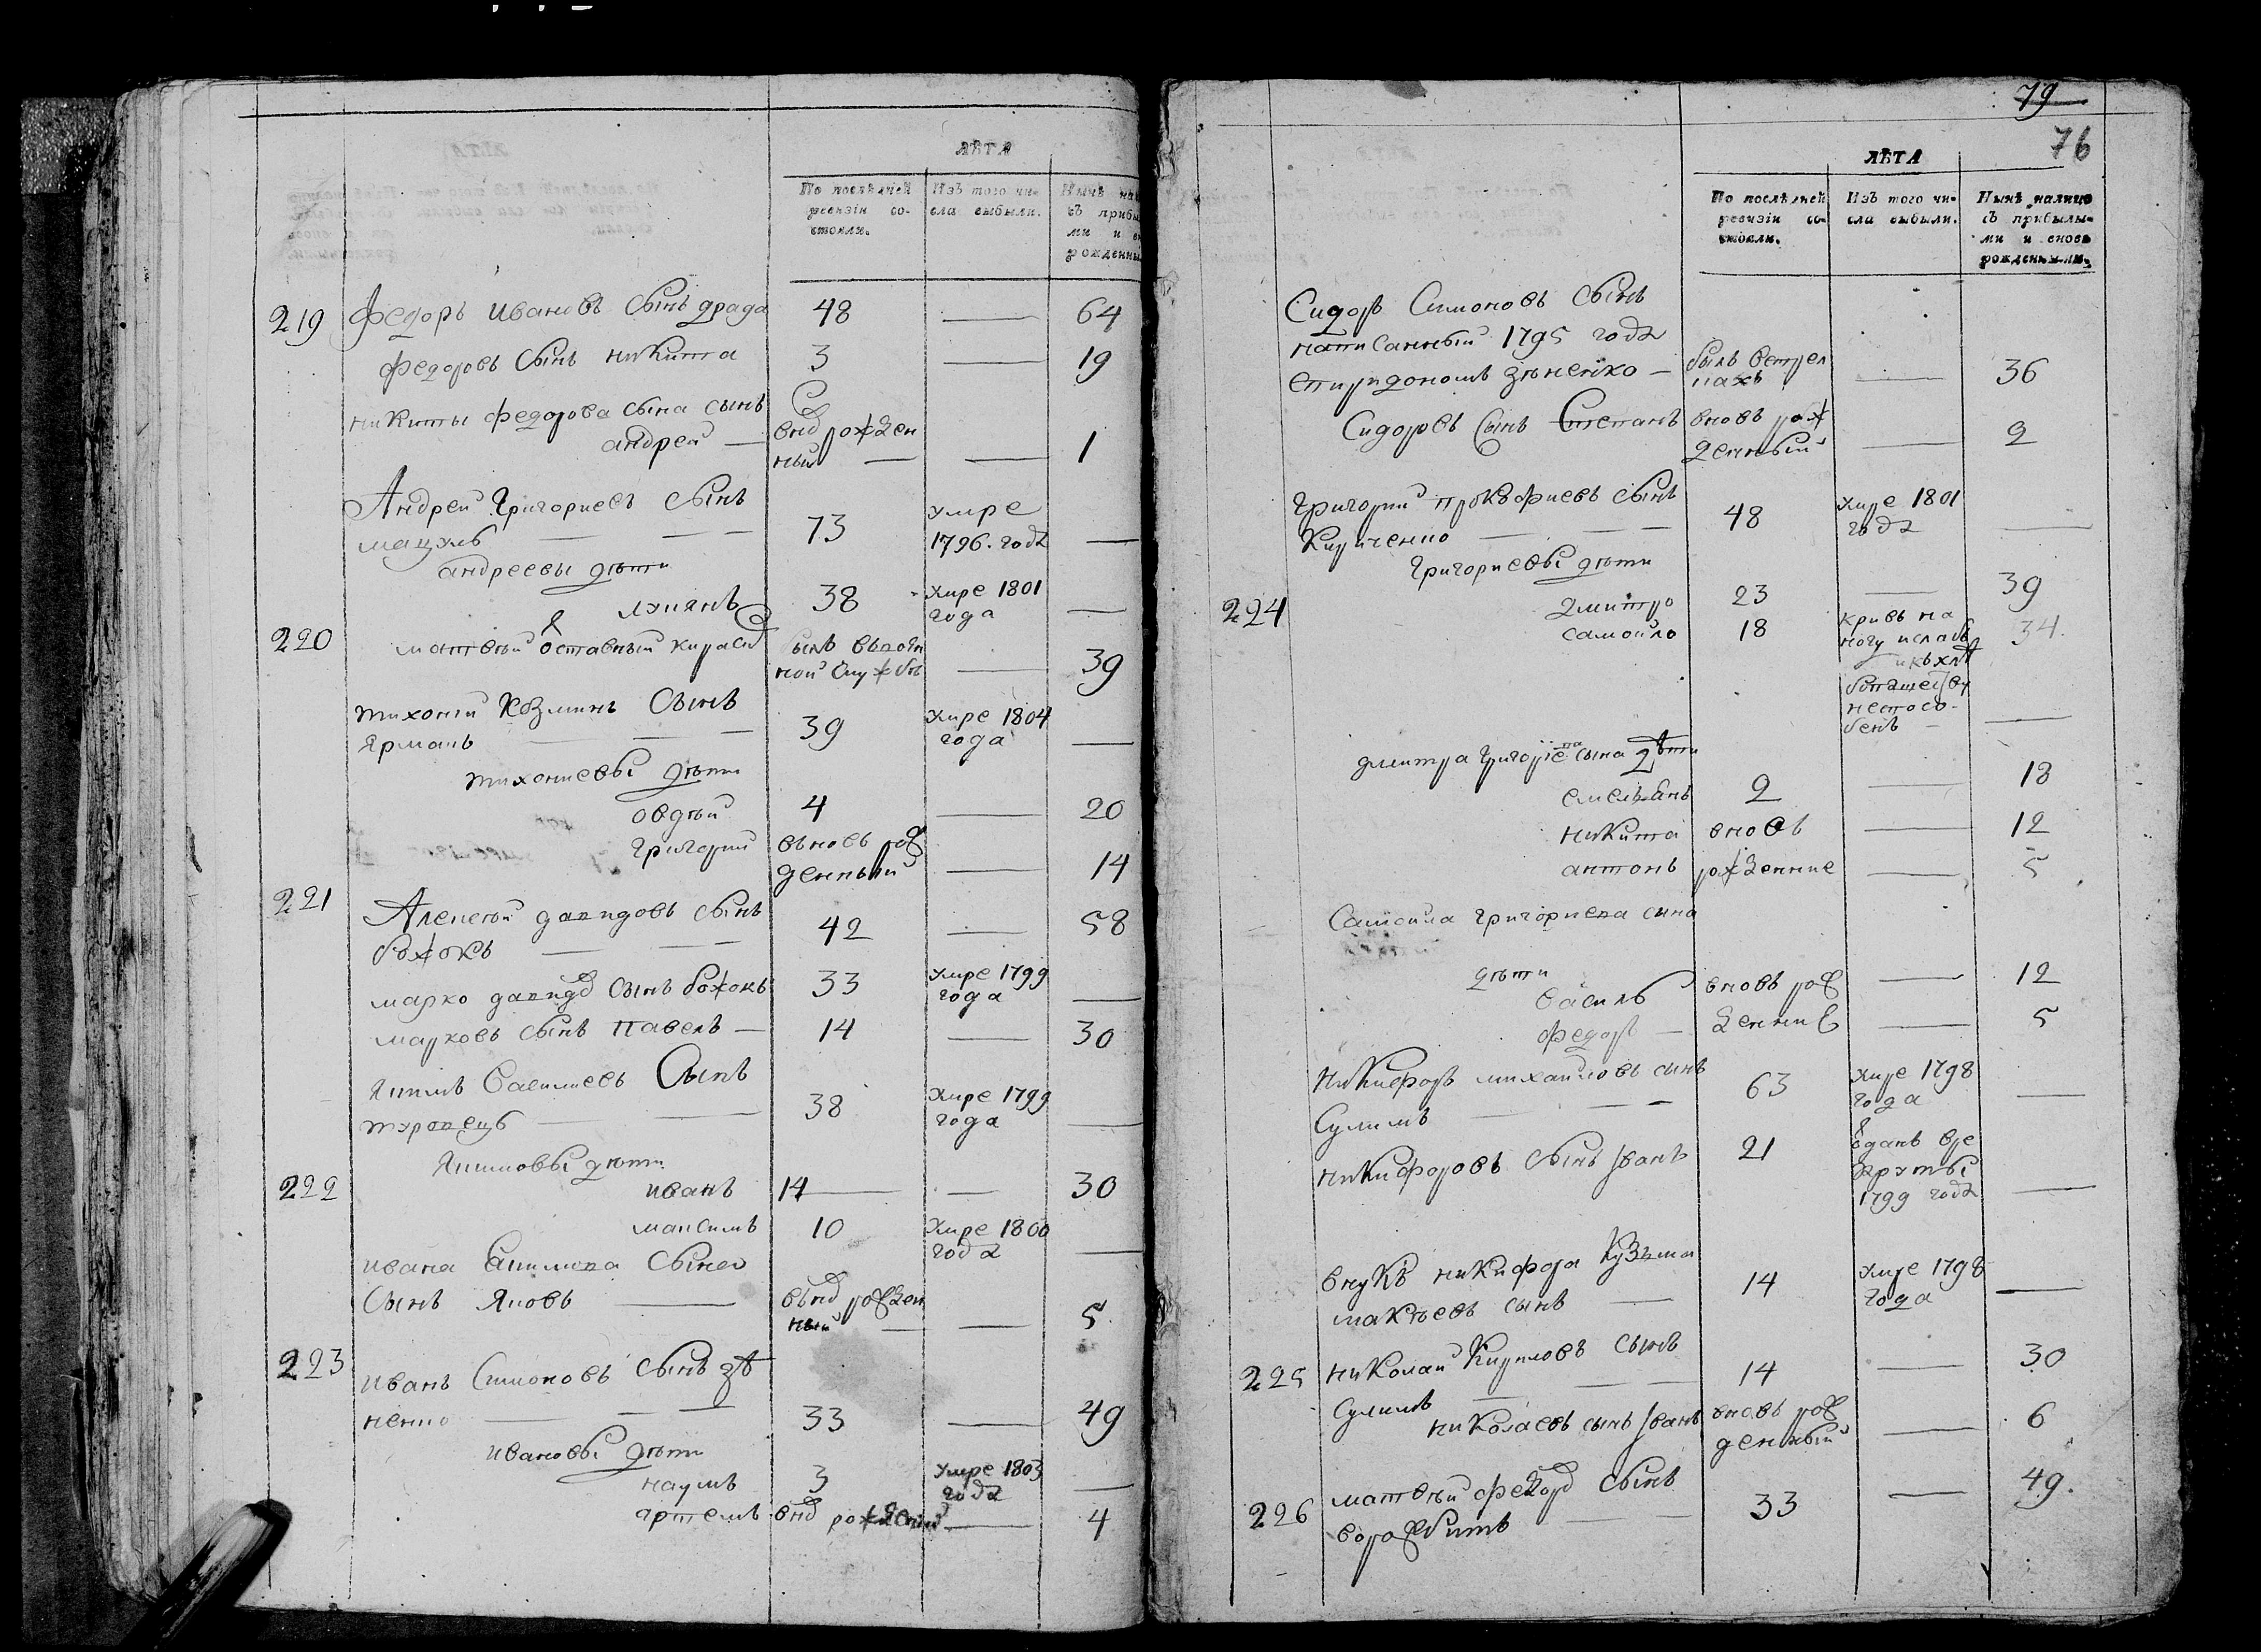 ЛѢТА
По послѣдней ревизіи состояли.
Изъ того числа выбыли.
Нынѣ на
съ прибы
ми и в
рожденны
219 Федоръ Ивановъ сынъ драда 48 — 64
Федоровъ сынъ никита 3 — 19
никиты федорова сына сынъ
андрей — внов рожден
ный — — 1
Андрей Григориевъ сынъ
мацукъ — — — 73 умре
1796. года —
андреевы дѣти
лукянъ 38 умре 1801
года —
220 матвѣй отставный кирасир былъ въвоин
ной службѣ — 39
тихонъ козминъ сынъ
ярмакъ — — — 39 умре 1804
года —
тихониевы дѣти
овдѣй 4 — 20
Григорий вьновь рож
денный — 14
221 Алексѣй давидовъ сынъ
божокъ — — — 42 — 58
марко давидов сынъ божокъ 33 умре 1799
года —
марковъ сынъ павелъ — 14 — 30
якимъ василиевъ сынъ
туровецъ — — 38 умре 1799
года —
Якимовы дѣти
222 иванъ 14 — — 30
максимъ 10 умре 1800
года —
ивана акимова сына
сынъ яковъ — вьнов рожден
ный — — 5
223 иванъ Симоновъ сынъ зѣ
ненко — — — 33 — 49
ивановы дѣти
наумъ 3 умре 1803
года —
артемъ внов рожденный — 4
79
76
ЛѢТА
По послѣдней ревизіи состояли.
Изъ того числа выбыли.
Нынѣ налицо съ прибылыми и вновь рожденными.
Сидоръ Симоновъ сынъ
написанный 1795 года
спиридономъ зѣненко — былъ вбѣгах — 36
Сидоровъ сынъ Степанъ вновь рож
денный — 2
Григорий прокофиевъ сынъ
Кириченко — — — 48 умре 1801
года —
Григориевы дѣти
224 дмитро 23 — 39
самойло 18 кривъ на
ногу и слабъ
34.
неспосо-
бенъ — —
дмитра григориева сына дѣти
емельянъ 2 — 18
никита вновь — 12
антонъ рожденние — 5
Самойла григориева сына
дѣти
василь вновь рож — 12
федоръ — денние — 5
никифоръ михайловъ сынъ
Сулимъ — — — 63 умре 1798
года —
никифоровъ сынъ Іванъ 21 отданъ вре
круты
1799 года —
внукъ никифора кузьма
сынъ — 14 умре 1798
года —
225 николай Кириловъ сынъ
Сулимъ — — — 14 — 30
николаевъ сынъ Іванъ вновь рож
денный — 6
226 матвѣй федоров сынъ
воробитъ — — 33 — 49.